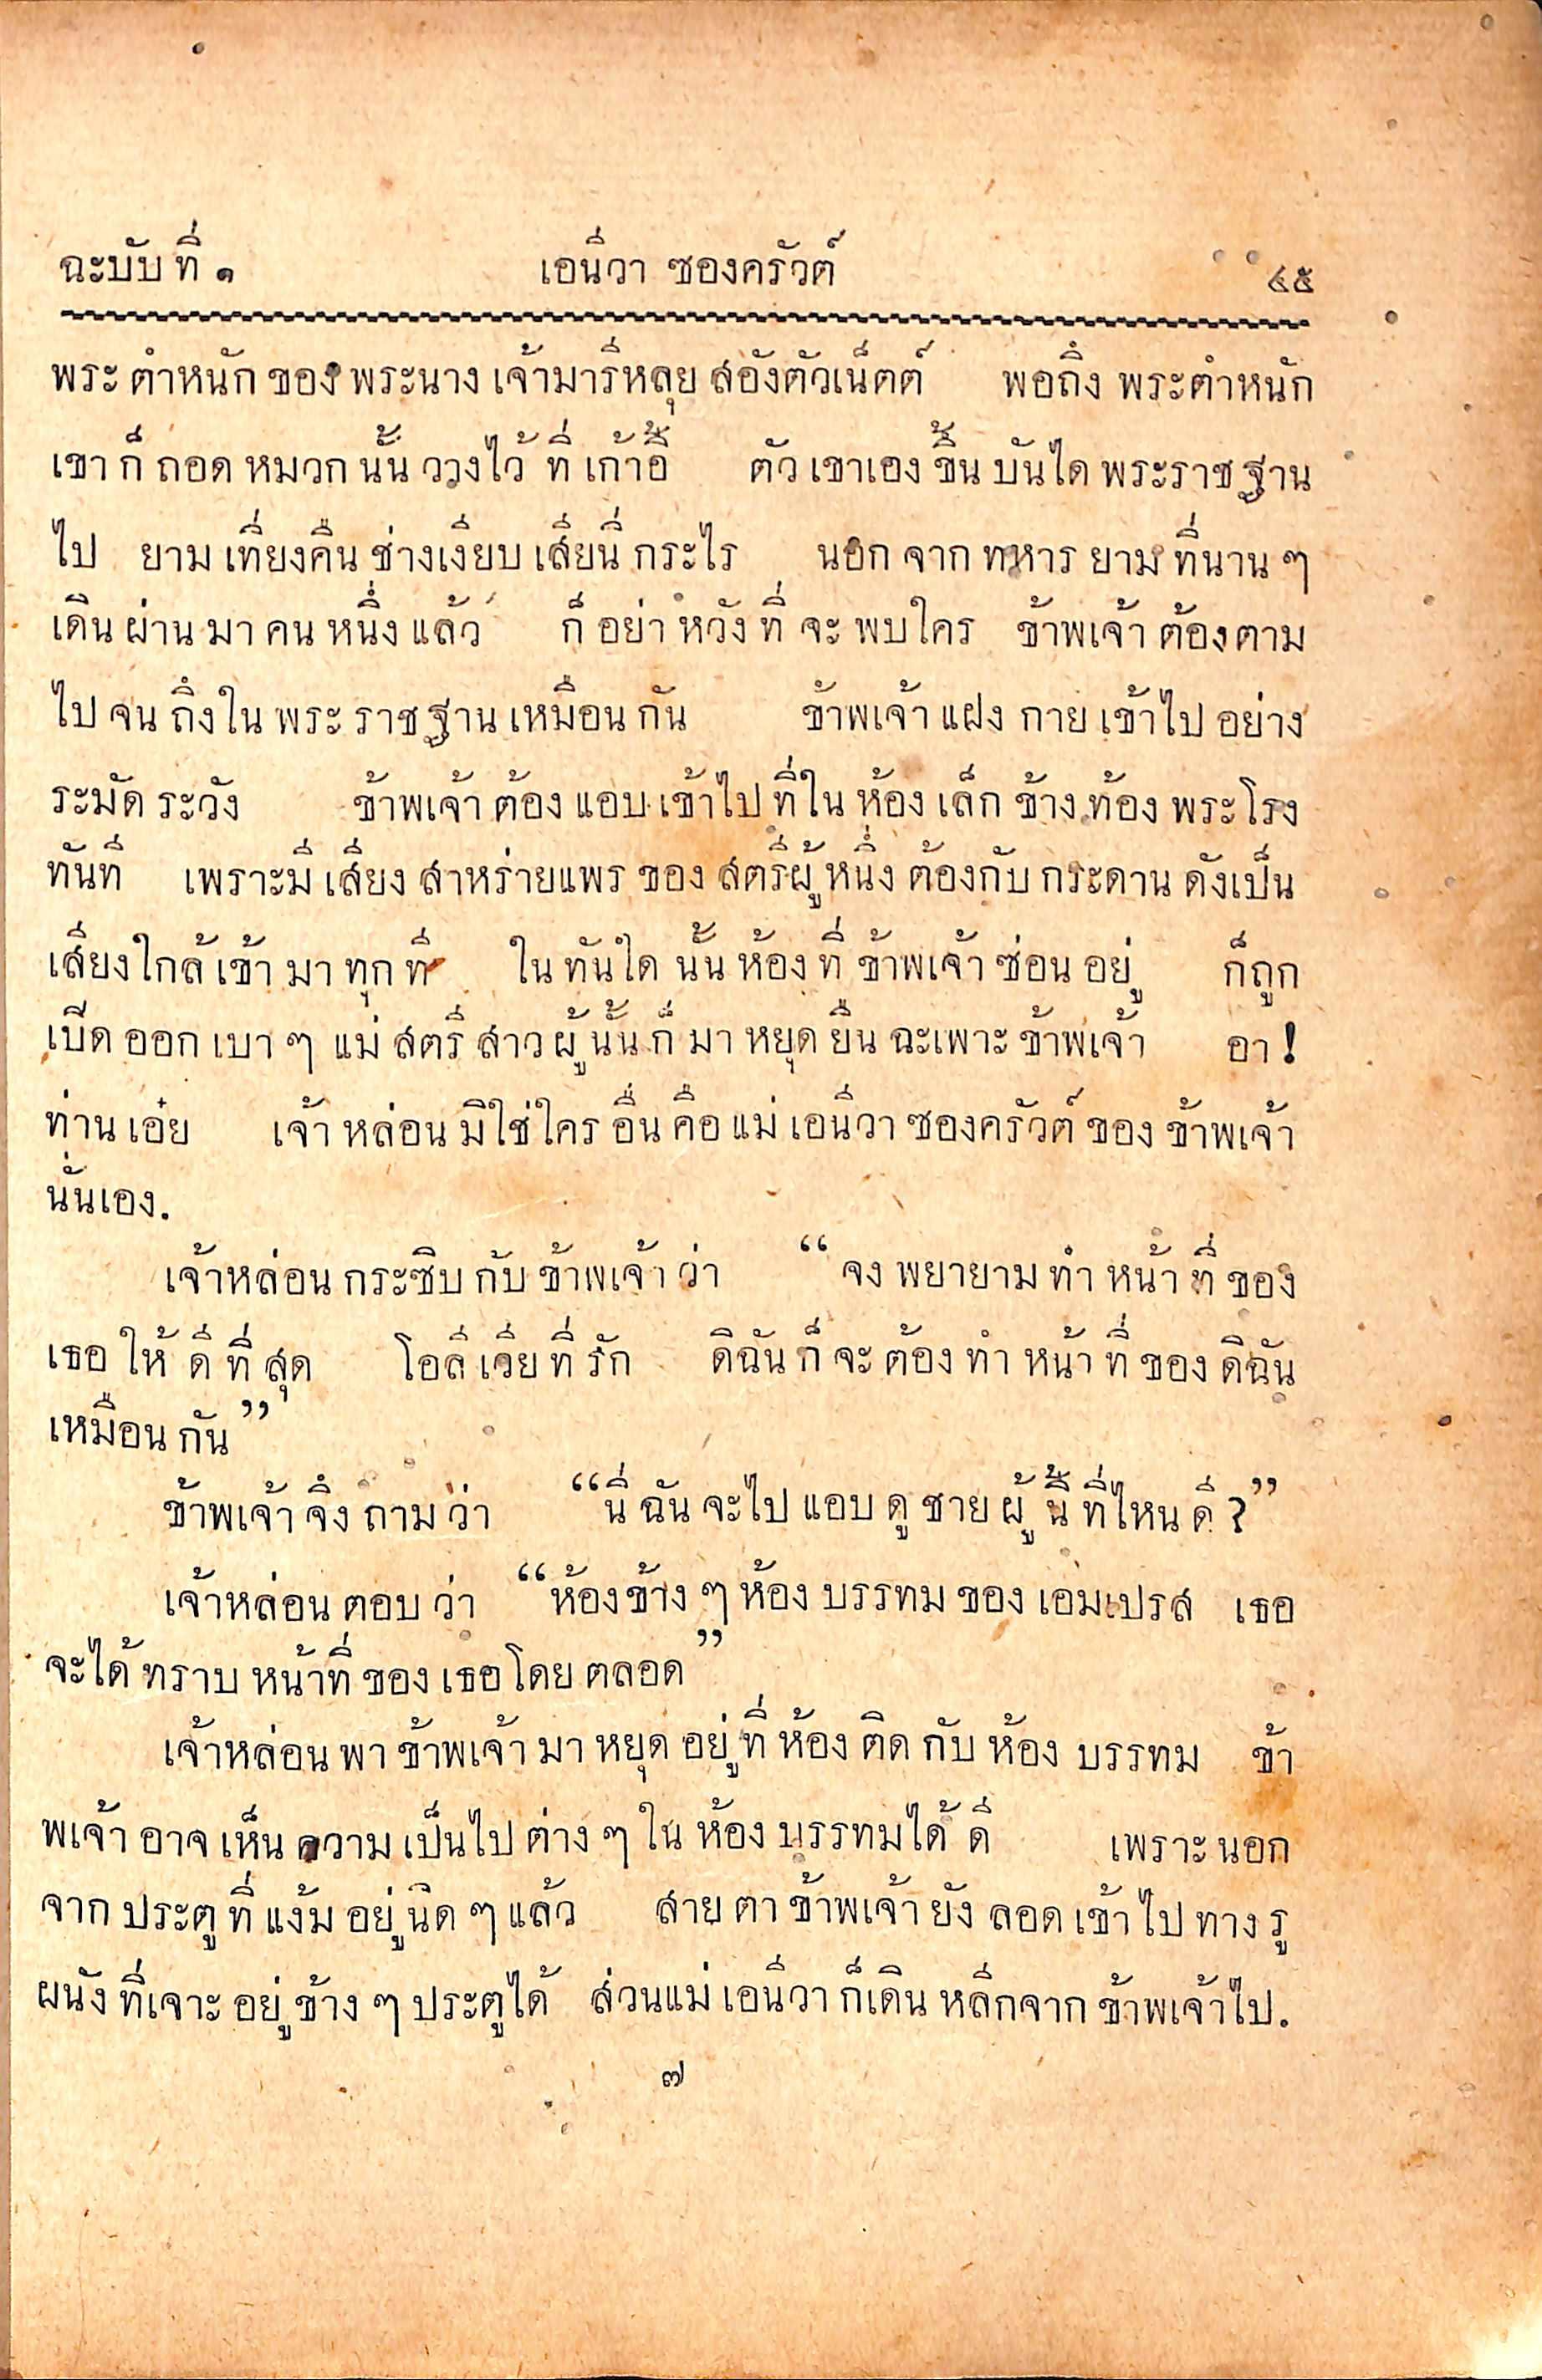 ฉะบับ ที่ ๑ เอนีวา ซองครัวต์ ๔๕
พระ ตำหนัก ของ พระนาง เจ้ามารีหลุย สอังตัวเน็ตต์ พอถึง พระตำหนัก
เขา ก็ ถอด หมวก นั้น วางไว้ ที่ เก้าอี้ ตัว เขาเอง ขึ้น บันได พระราช ฐาน
ไป ยาม เที่ยงคืน ช่างเงียบ เสียนี่ กระไร นอก จาก ทหาร ยาม ที่นาน ๆ
เดิน ผ่าน มา คน หนึ่ง แล้ว ก็ อย่า หวัง ที่ จะ พบ ใคร ข้าพเจ้า ต้อง ตาม
ไป จน ถึงใน พระ ราช ฐาน เหมือน กัน ข้าพเจ้า แฝง กาย เข้าไป อย่าง
ระมัด ระวัง ข้าพเจ้า ต้อง แอบ เข้าไป ที่ใน ห้อง เล็ก ข้าง ท้อง พระโรง
ทันที เพราะมี เสียง สาหร่ายแพร ของ สตรีผู้ หนึ่ง ต้องกับ กระดาน ดังเป็น
เสียงใกล้ เข้า มา ทุก ที ใน ทันใด นั้น ห้อง ที่ ข้าพเจ้า ซ่อน อยู่ ก็ถูก
เบีด ออก เบา ๆ แม่ สตรี สาว ผู้ นั้น ก็ มา หยุด ยืน ฉะเพาะ ข้าพเจ้า อา !
ท่าน เอ๋ย เจ้า หล่อน มิใช่ใคร อื่น คือ แม่ เอนีวา ซองครัวต์ ของ ข้าพเจ้า
นั่นเอง.
เจ้าหล่อน กระซิบ กับ ข้าพเจ้า ว่า “ จง พยายาม ทำ หน้า ที่ ของ
เธอ ให้ ดี ที่ สุด โอลีเวีย ที่ รัก ดิฉัน ก็ จะ ต้อง ทำ หน้า ที่ ของ ดิฉัน
เหมือน กัน ”
ข้าพเจ้า จึง ถาม ว่า “นี่ ฉัน จะไป แอบ ดู ชาย ผู้ นี้ ที่ไหน ดี ?”
เจ้าหล่อน ตอบ ว่า “ห้องข้าง ๆ ห้อง บรรทม ของ เอมเปรส เธอ
จะได้ ทราบ หน้าที่ ของ เธอ โดย ตลอด ”
เจ้าหล่อน พา ข้าพเจ้า มา หยุด อยู่ ที่ ห้อง ติด กับ ห้อง บรรทม ข้า
พเจ้า อาจ เห็น ความ เป็นไป ต่าง ๆ ใน ห้อง บรรทมได้ ดี เพราะ นอก
จาก ประตู ที่ แง้ม อยู่ นิด ๆ แล้ว สาย ตา ข้าพเจ้า ยัง ลอด เข้า ไป ทาง รู
ผนัง ที่เจาะ อยู่ ข้าง ๆ ประตูได้ ส่วนแม่ เอนีวา ก็เดิน หลีกจาก ข้าพเจ้าไป.
๗